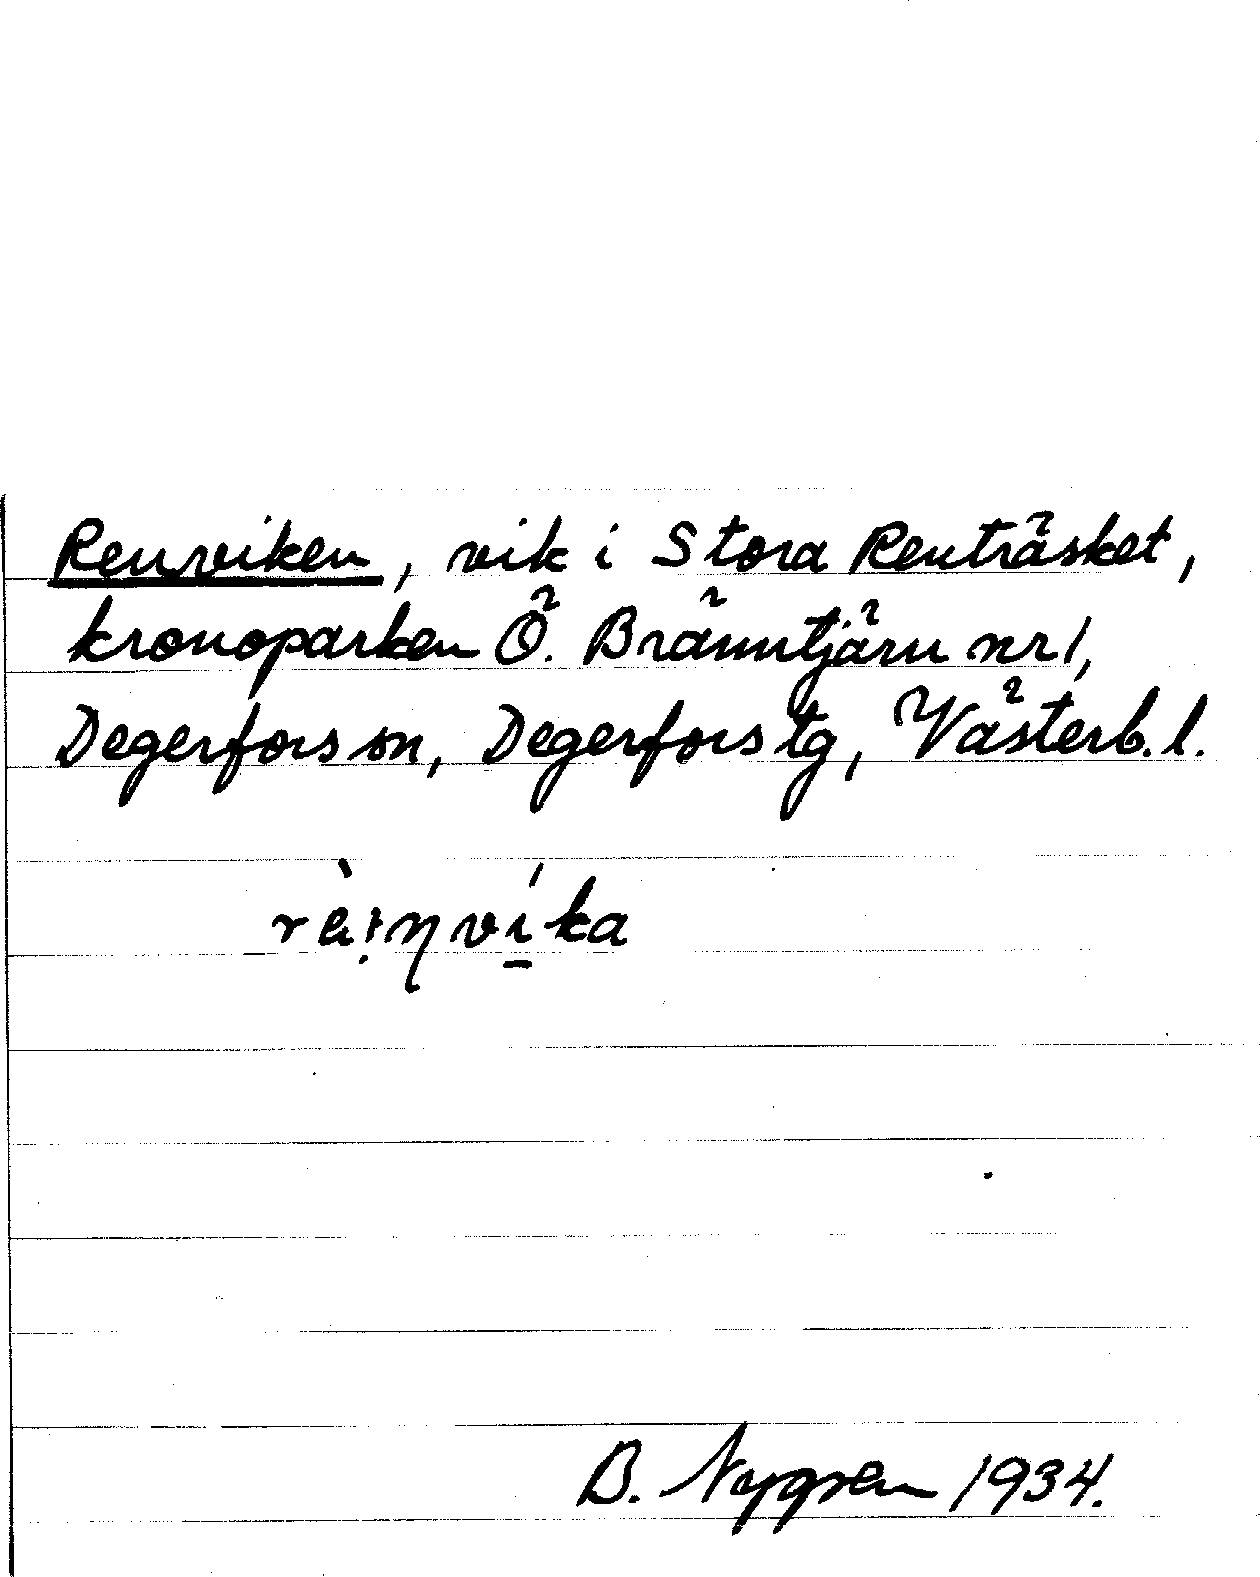 Renviken, vik i Stora Renträsket,
kronoparken Ö. Bränntjärn nr 1,
Degerfors sn, Degerfors tg, Västerb. l.
B. Nygren 1934.